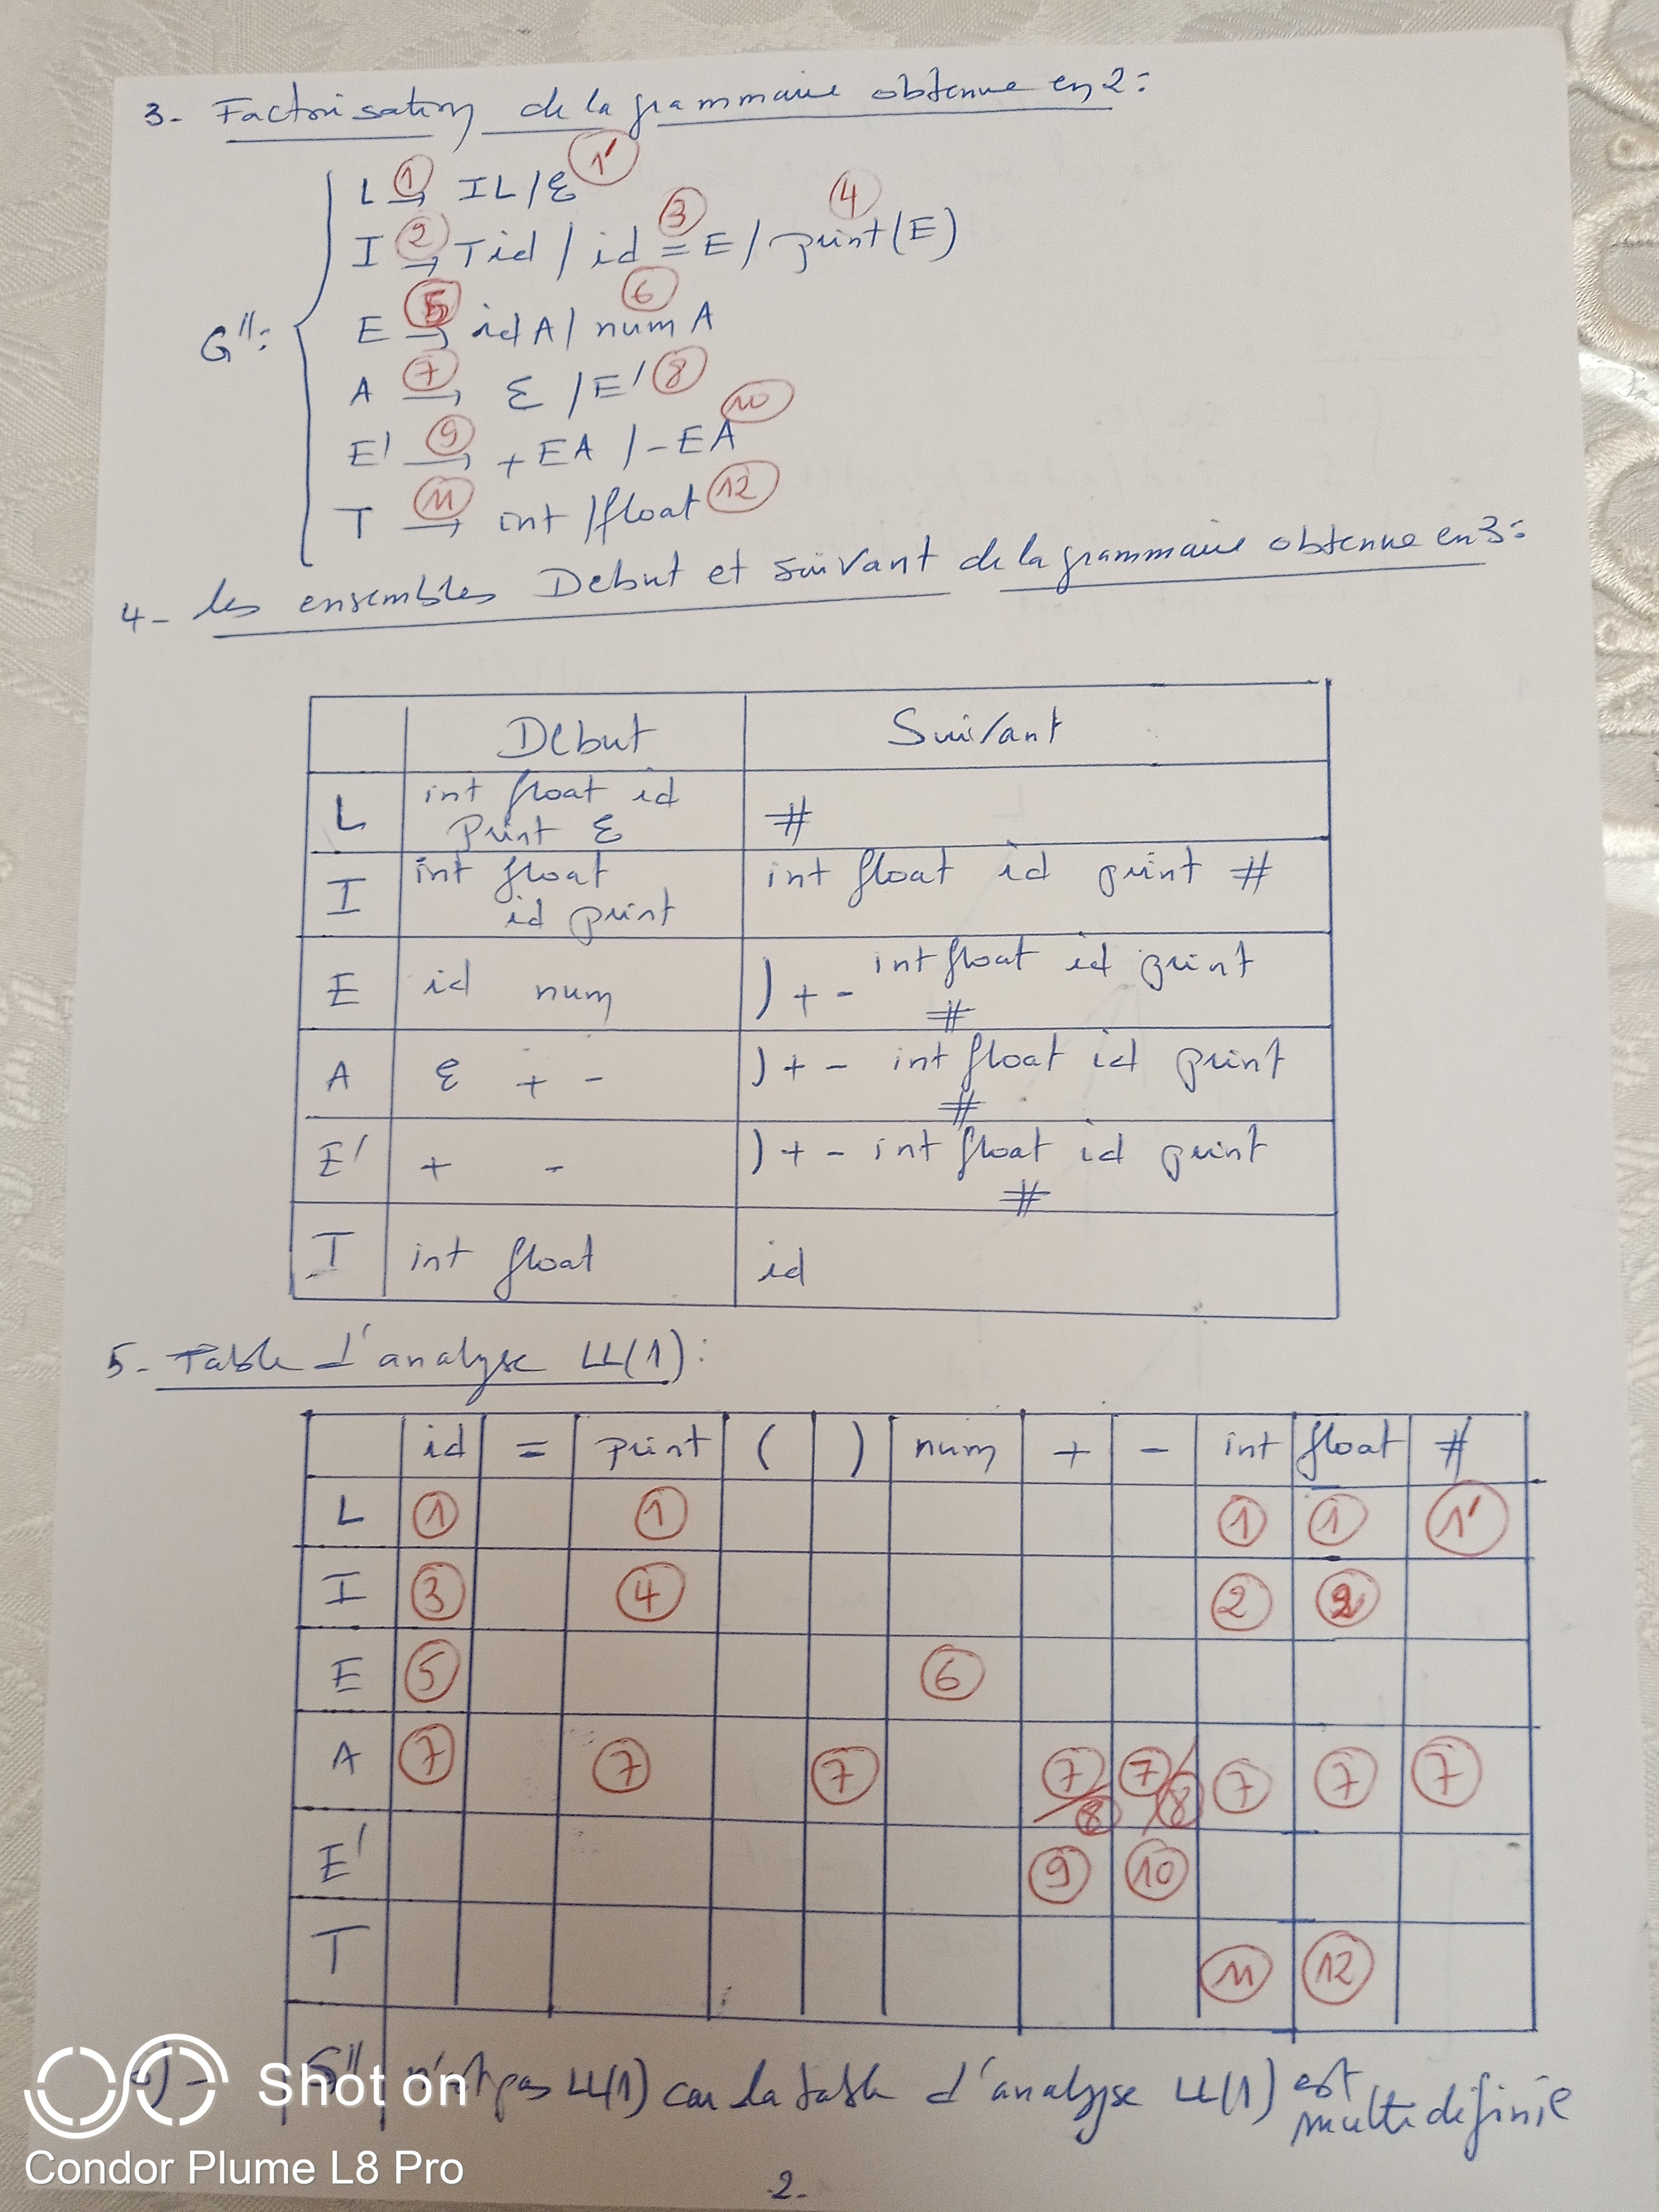 3- Factorisation de la grammaire obtenue en 2:
L ① → IL/ε ①'
I ② → T id / id ③ = E / ④ print(E)
G'': E ⑤ → id A / ⑥ num A
A ⑦ → ε / E' ⑧
E' ⑨ → + EA / - EA ⑩
T ⑪ → int / float ⑫
4- les ensembles Debut et suivant de la grammaire obtenue en 3:
Debut Suivant
L int float id print ε #
I int float id print int float id print #
E id num ) + - int float id print #
A ε + - ) + - int float id print #
E' + - ) + - int float id print #
T int float id
5- Table d'analyse LL(1):
id = print ( ) num + - int float #
L ① ① ① ① ①'
I ③ ④ ② ②
E ⑤ ⑥
A ⑦ ⑦ ⑦ ⑦/⑧ ⑦/⑧ ⑦ ⑦ ⑦
E' ⑨ ⑩
T ⑪ ⑫
G'' n'est pas LL(1) car la table d'analyse LL(1) est multidéfinie
-2-
Shot on
Condor Plume L8 Pro